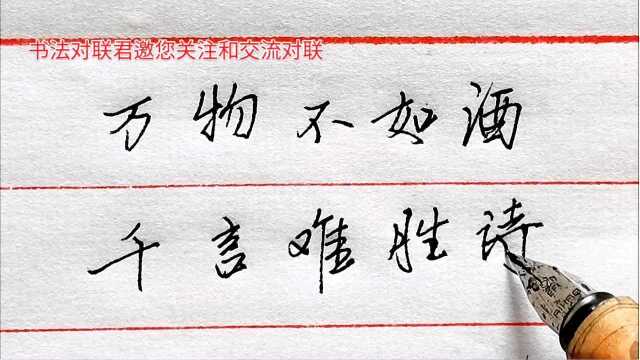 书法对联君邀您关注和交流对联
万物不如酒
千言难胜诗